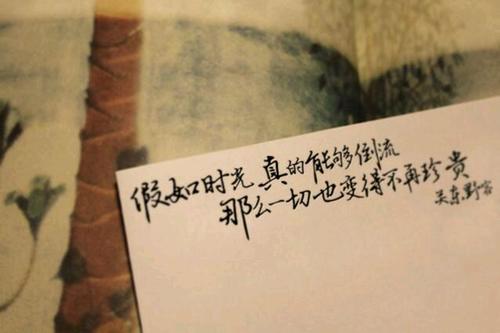 假如时光真的能够倒流
那么一切也变得不再珍贵
吴东野字